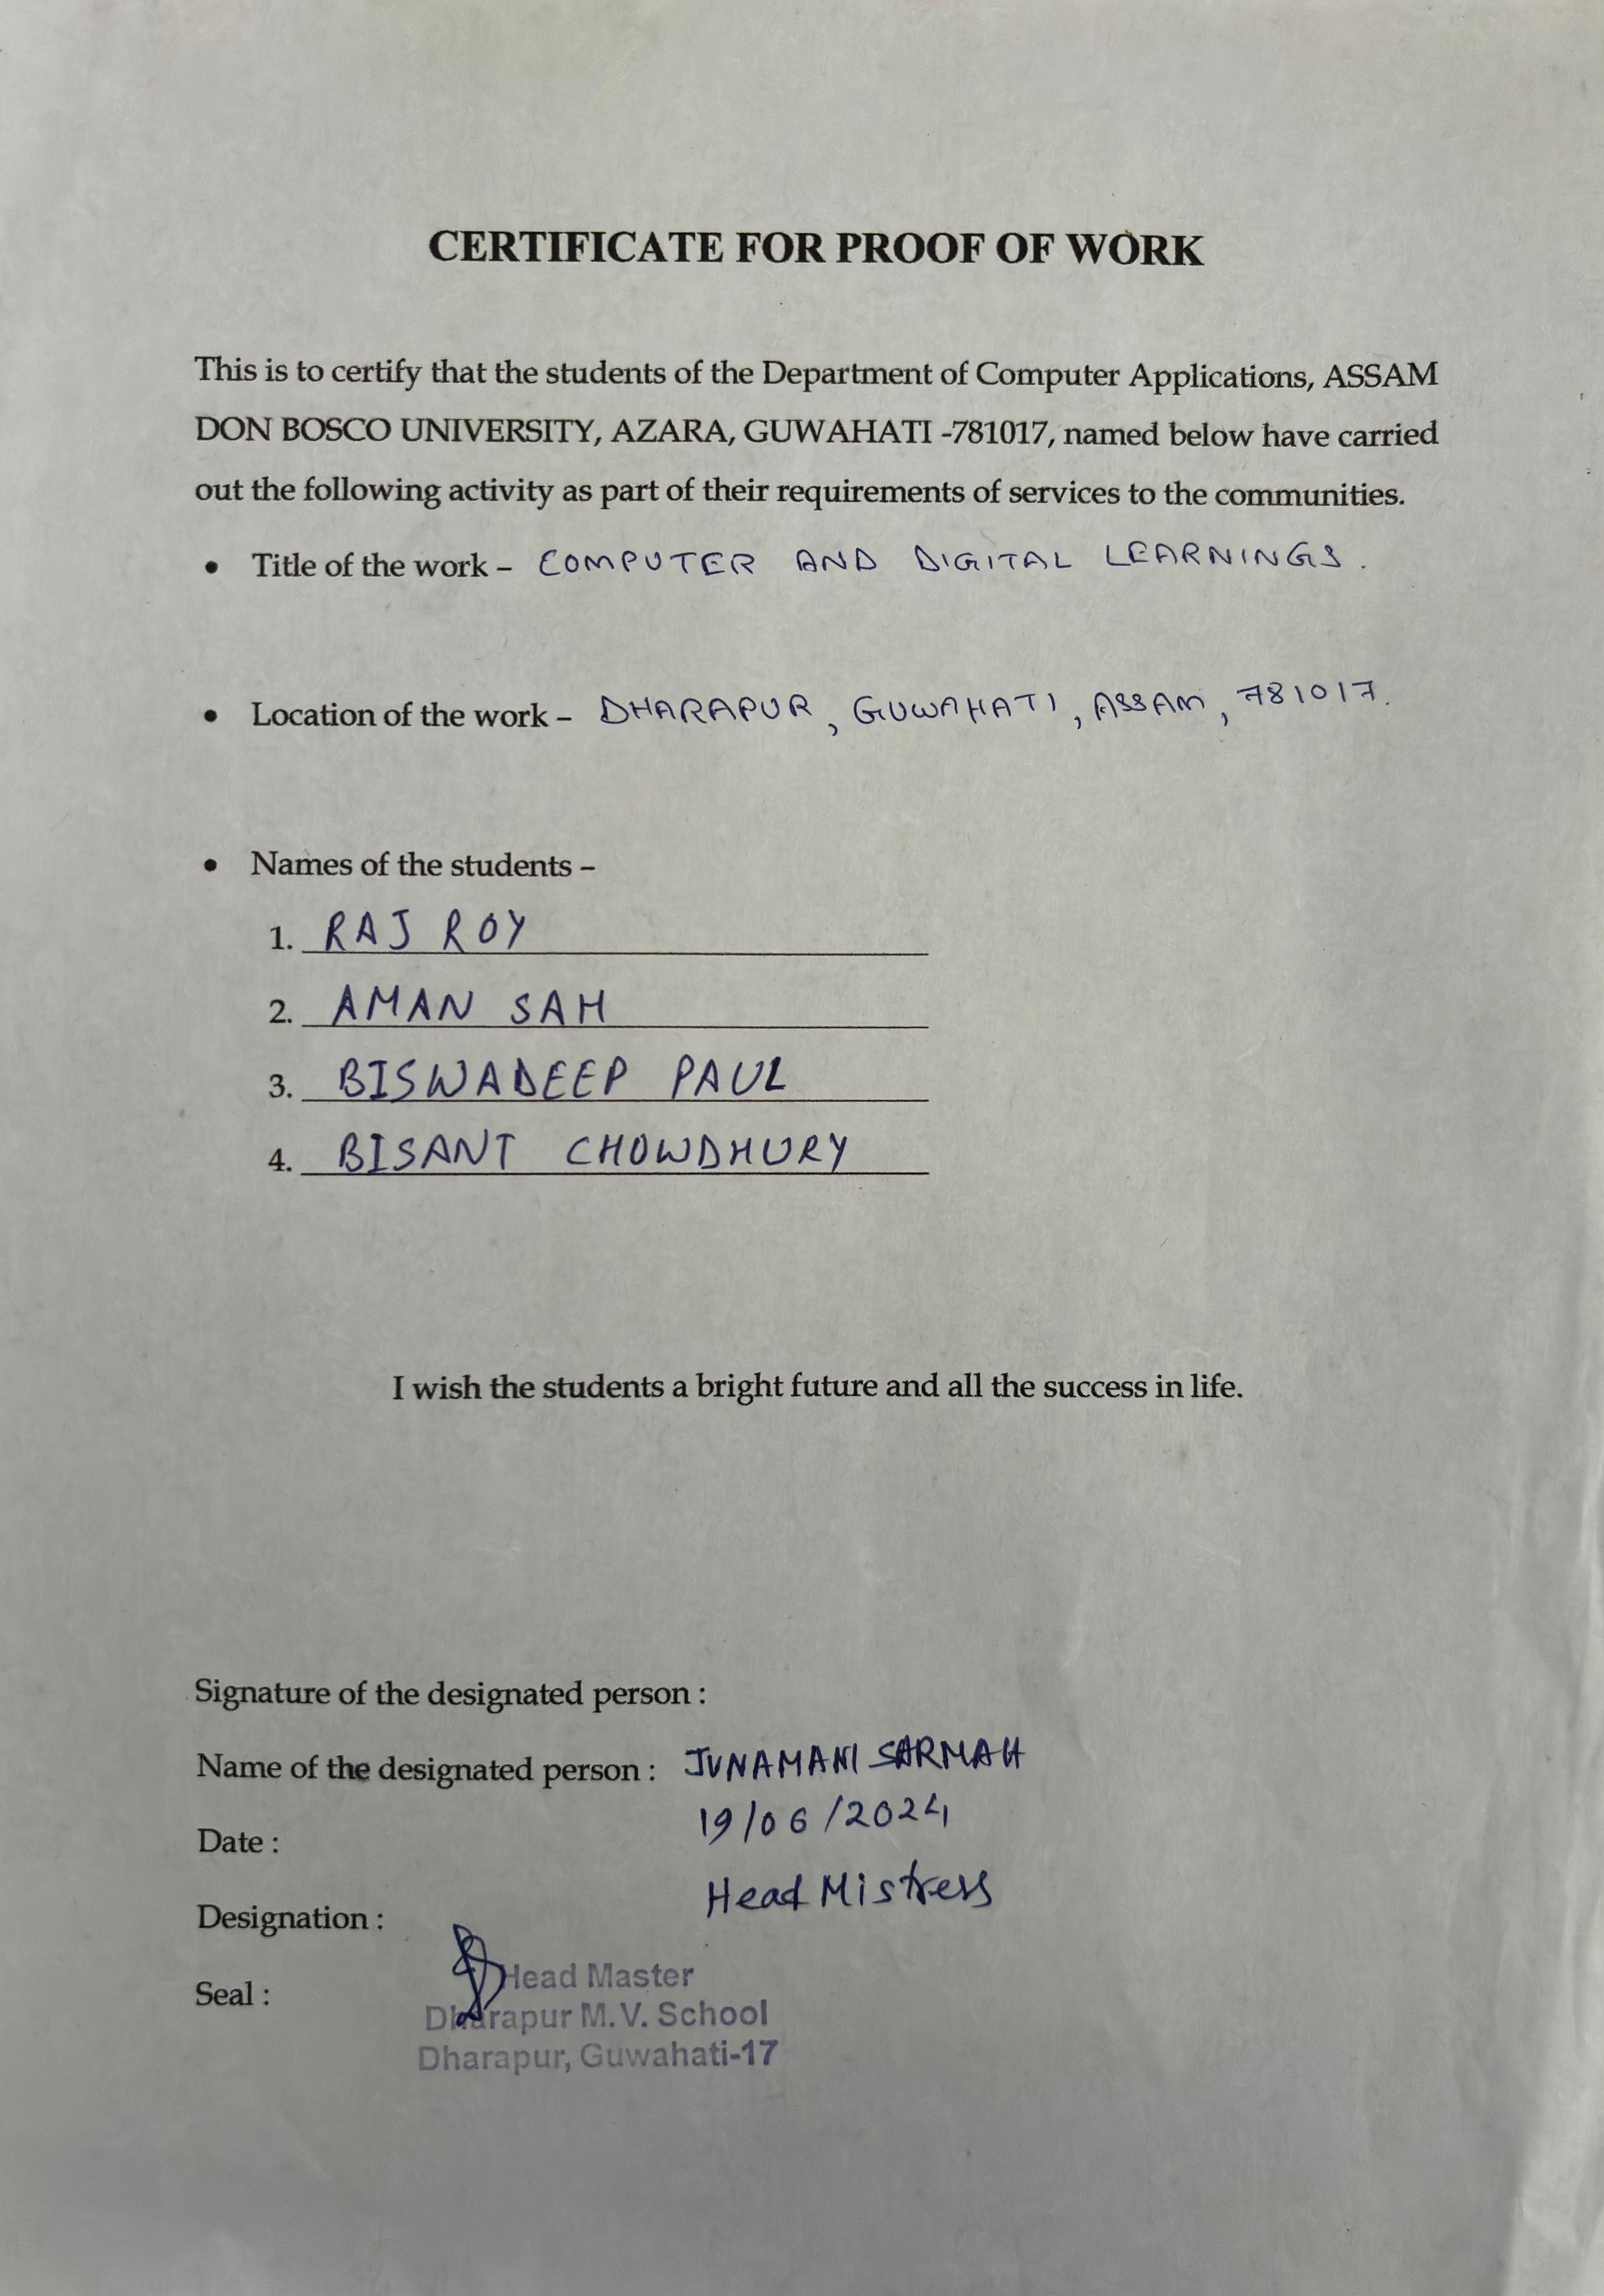 CERTIFICATE FOR PROOF OF WORK
This is to certify that the students of the Department of Computer Applications, ASSAM
DON BOSCO UNIVERSITY, AZARA, GUWAHATI -781017, named below have carried
out the following activity as part of their requirements of services to the communities.
• Title of the work – COMPUTER AND DIGITAL LEARNINGS.
• Location of the work – DHARAPUR, GUWAHATI, ASSAM, 781017.
• Names of the students –
1. RAJ ROY
2. AMAN SAH
3. BISWADEEP PAUL
4. BISANT CHOWDHURY
I wish the students a bright future and all the success in life.
Signature of the designated person :
Name of the designated person : JUNAMANI SARMAH
Date : 19/06/2024
Designation : Head Mistress
Seal : Head Master
Dharapur M.V. School
Dharapur, Guwahati-17